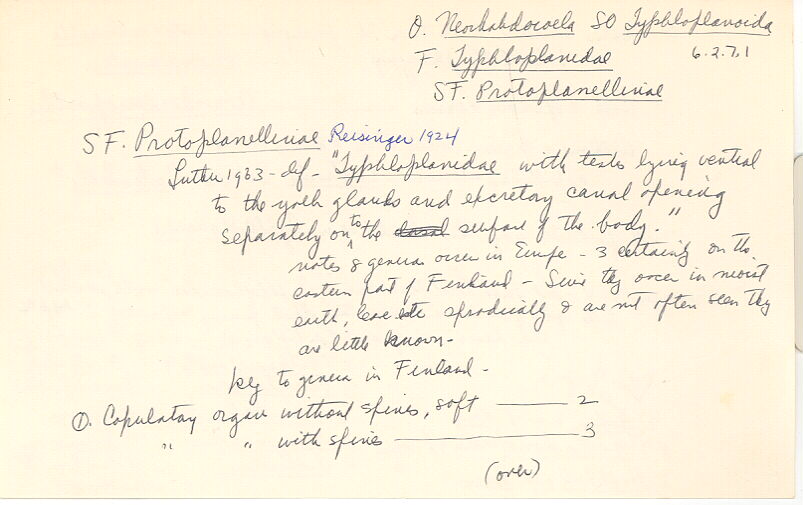 O. Neorhabdocoela SO Typhloplanoida
F. Typhloplanidae 6.2.7.1
SF. Protoplanellinae
SF. Protoplanellinae Reisinger 1924
Luther 1963 - def - "Typhloplanidae with testes lying ventral
to the yolk glands and excretory canal opening
separately on to the surface of the body."
notes 8 genera occur in Europe - 3 certainly on the
eastern part of Finland - Since they occur in moist
earth, sporadically & are not often seen they
are little known -
key to genera in Finland -
①. Copulatory organ without spines, soft ——— 2
" " with spines ——— 3
(over)